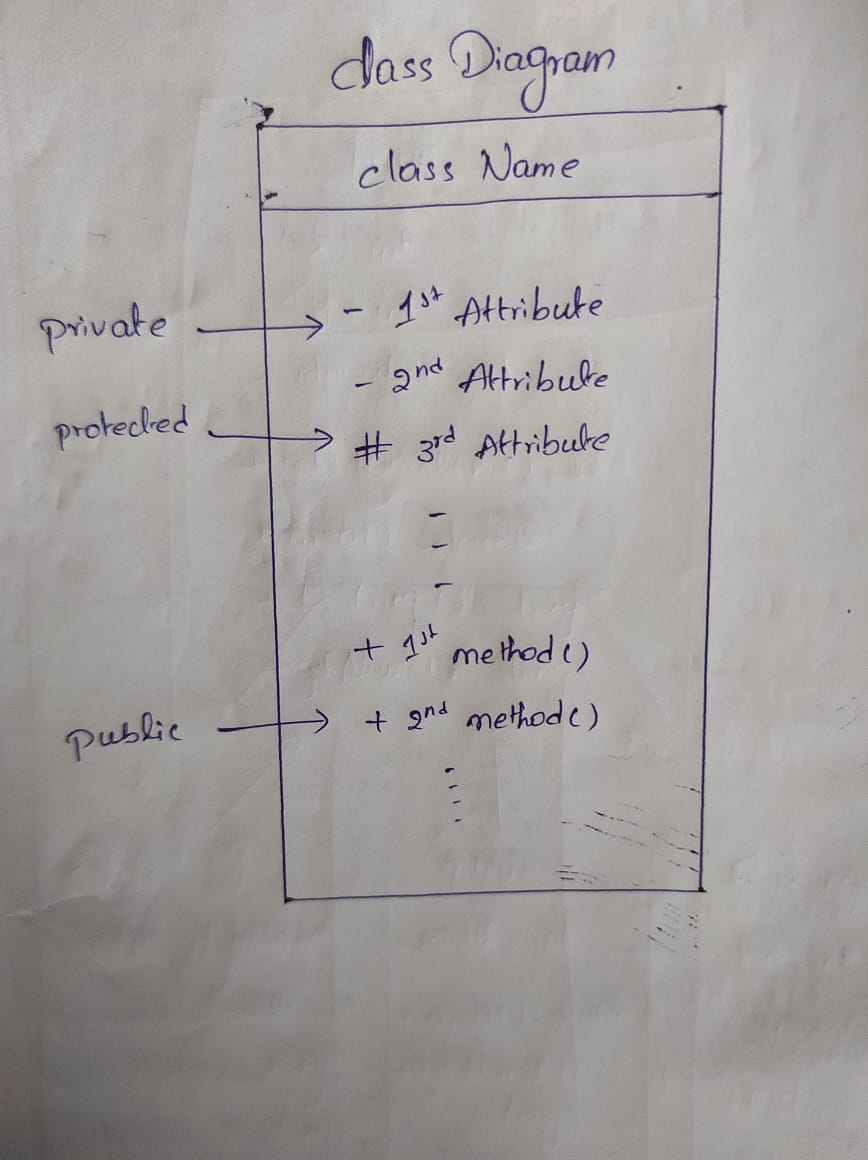 class Diagram
class Name
private → - 1st Attribute
- 2nd Attribute
protected → # 3rd Attribute
-
-
-
+ 1st method()
public → + 2nd method()